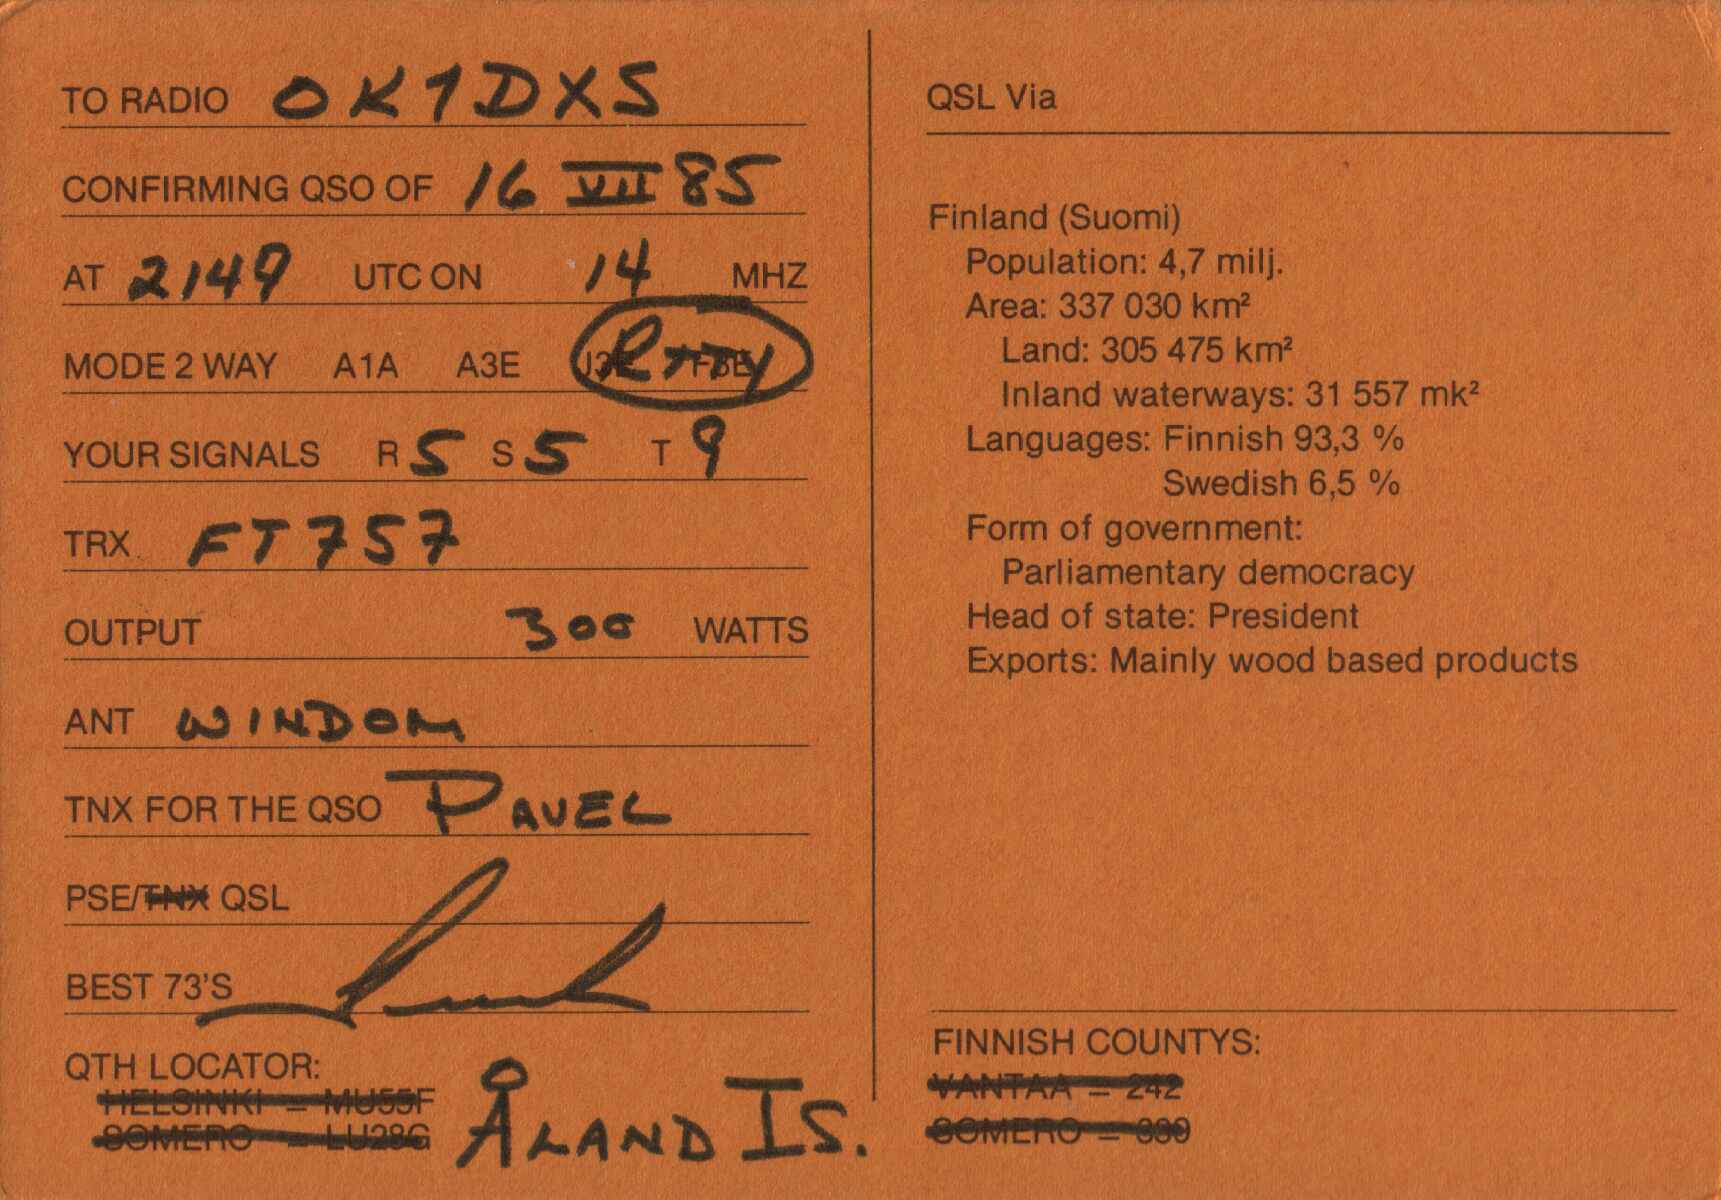 TO RADIO OK1DXS
CONFIRMING QSO OF 16 VII 85
AT 2149 UTC ON 14 MHZ
MODE 2 WAY A1A A3E J3E F3E RTTY
YOUR SIGNALS R 5 S 5 T 9
TRX FT757
OUTPUT 300 WATTS
ANT WINDOM
TNX FOR THE QSO PAVEL
PSE/TNX QSL
BEST 73'S
QTH LOCATOR:
HELSINKI = MU55F
SOMERO = LU28G
ÅLAND IS.
QSL Via
Finland (Suomi)
Population: 4,7 milj.
Area: 337 030 km²
Land: 305 475 km²
Inland waterways: 31 557 mk²
Languages: Finnish 93,3 %
Swedish 6,5 %
Form of government:
Parliamentary democracy
Head of state: President
Exports: Mainly wood based products
FINNISH COUNTYS:
VANTAA = 242
SOMERO = 339